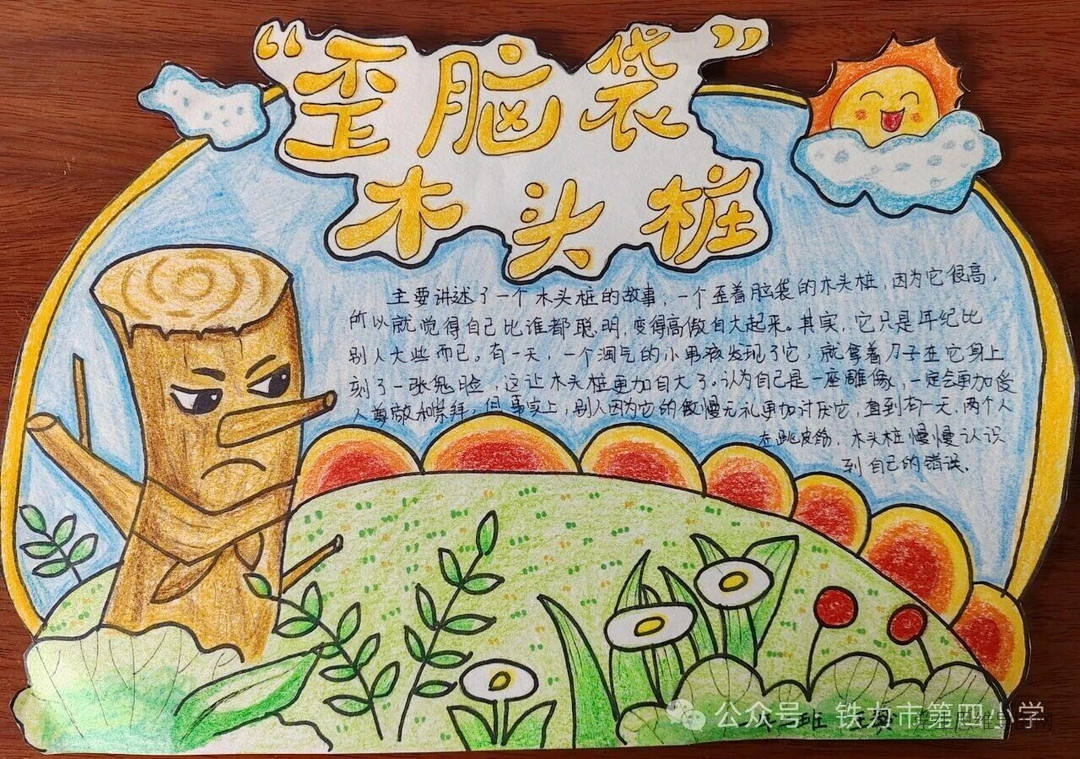 “歪脑袋”
木头桩
主要讲述了一个木头桩的故事,一个歪着脑袋的木头桩,因为它很高,
所以就觉得自己比谁都聪明,变得高傲自大起来。其实,它只是年纪比
别人大些而已。有一天,一个淘气的小男孩发现了它,就拿着刀子在它身上
刻了一张鬼脸,这让木头桩更加自大了。认为自己是一座雕像,一定会更加受
人尊敬和崇拜,但事实上,别人因为它的傲慢无礼更加讨厌它,直到有一天,两个人
在跳皮筋,木头桩慢慢认识
到自己的错误。
公众号 铁力市第四小学